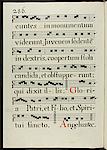 286.
euntes in monumentum
viderunt juvenem sedent
in dextris, coopertum stola
candida, et obstupue- runt:
qui dixit il- lis: Glo- ri-
a Patri, et Fi- li- o, et Spiri-
tui sancto. Angelus